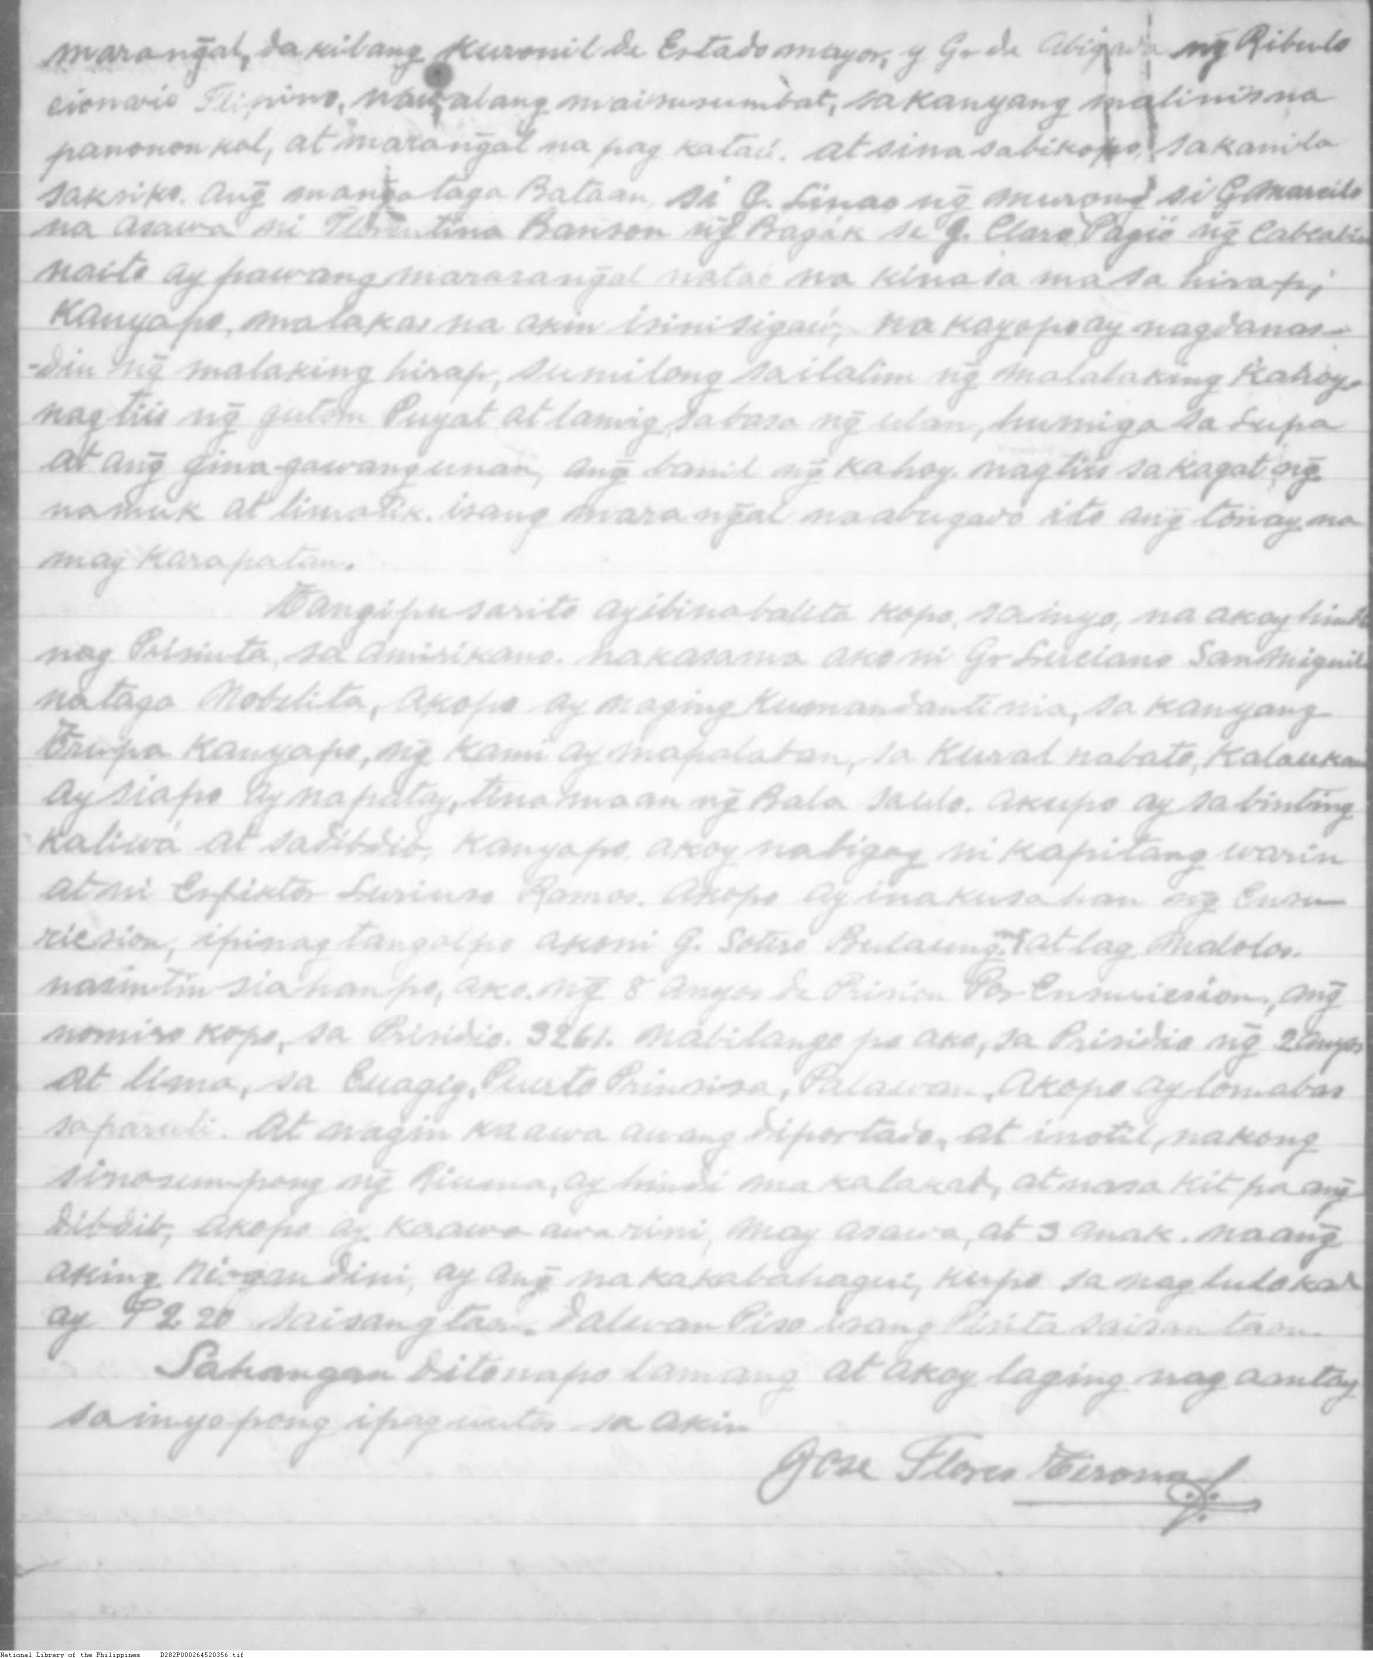 marang̃al, dakilang Kuronil de Estado mayor, y Gr de Abigada ng̃ Ribulo
cionario Filipino, na walang maisusumbat, sa kanyang malinis na
panonon kol, at marang̃al na pag katau. at sina sabi kopo, sa kanila
saksiko. Ang̃ manga taga Bataan, si G. Linao ng̃ Murong si G. Marcilo
na asawa ni Florentina Banson ng̃ Bagák si G. Claro Pagio ng̃ Cabcabin
naito ay pawang mararang̃al natao na kinasa ma sa hirap,
Kanyapo, malakas na akin isinisigaw, na kayopo ay nagdanas-
-din ng̃ malaking hirap, sumilong sa ilalim ng̃ malalaking Kahoy.
nagtiis ng̃ gutom Puyat at lamig, sa basa ng̃ ulan, humiga sa Lupa
at ang̃ gina-gawang unan, ang̃ banil ng̃ kahoy. nagtiis sa kagat ng̃
namuk at limatik. isang marang̃al na abugado ito ang̃ tonay na
may karapatan.
Tangipu sarito ay ibinabalita kopo, sa inyo, na akoy hindi
nag Prisinta, sa amirikano. nakasama ako ni Gr Luciano San Miguil
na taga Nobelita, Akopo ay naging Kumandanti nia, sa kanyang
Trupa Kanyapo, ng̃ kami ay mapalaban, sa Kural nabato, Kalaukan
ay siapo ay napatay, tina maan ng̃ Bala saulo. akupo ay sa binting
kaliwa at sadibdib, Kanyapo, akoy nabigay ni Kapitang warin
at ni Ramos. akopo ay inakusahan ng̃ Ensu-
ricsion, ipinag tangolpo akoni G. Sotero Bulaung. at lag Malolos.
nasintinsiahan po, ako. ng̃ 8 anyos de Prision Por Ensuricsion, ang̃
nomiro kopo, sa Prisidio. 3261. Nabilango po ako, sa Prisidio ng̃ 2 anyos
at lima, sa Euagig, Puerto Prinsisa, Palawan, Akopo ay lomabas
saparuli. At nagin kaawa awang diportado, at inotil, nakong
sinosumpong ng̃ Riuma, ay hindi makalakad, at masa kit pa ang̃
dibdib, akopo ay kaawa awa rini, may asawa, at 3 anak. na ang̃
aking dini, ay ang̃ nakakabahagui, kupo sa nag lulokad
ay ₱2.20 saisang taon. Dalwan Piso isang Pisita saisan taon.
Sahangan ditonapo lamang at akoy laging nag aantay
sa inyo pong ipaguutos sa akin
Jose Flores Tirona
National Library of the Philippines D282P000264520356.tif